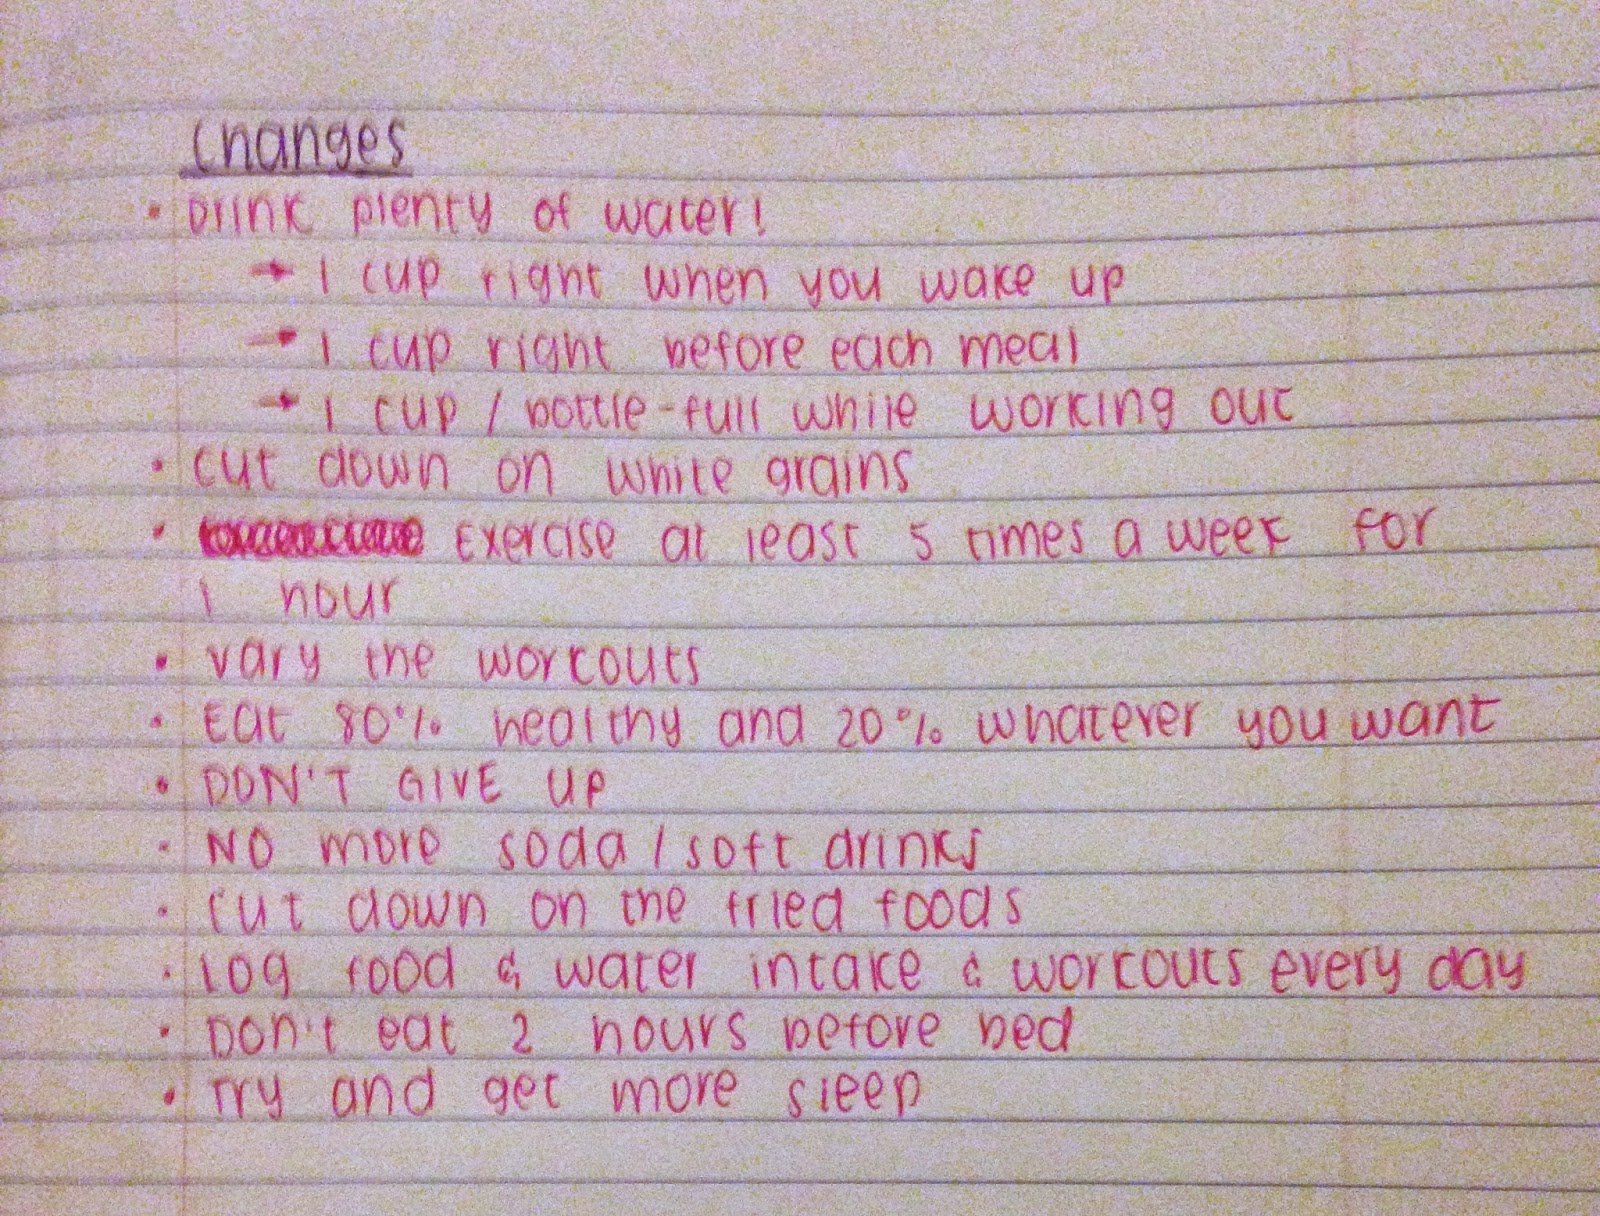 Changes
• Drink plenty of water!
→ 1 cup right when you wake up
→ 1 cup right before each meal
→ 1 cup / bottle-full while working out
• cut down on white grains
• Exercise at least 5 times a week for
1 hour
• vary the workouts
• Eat 80% healthy and 20% whatever you want
• DON'T GIVE UP
• NO more soda / soft drinks
• cut down on the fried foods
• Log food & water intake & workouts every day
• Don't eat 2 hours before bed
• Try and get more sleep